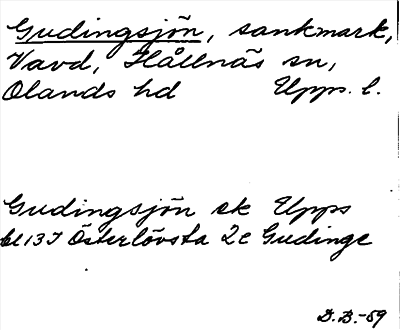 Gudingsjön, sankmark,
Vavd, Hållnäs sn,
Olands hd Upps. l.
Gudingsjön ek Upps
bl 13 I Österlövsta 2c Gudinge
D.B.-59